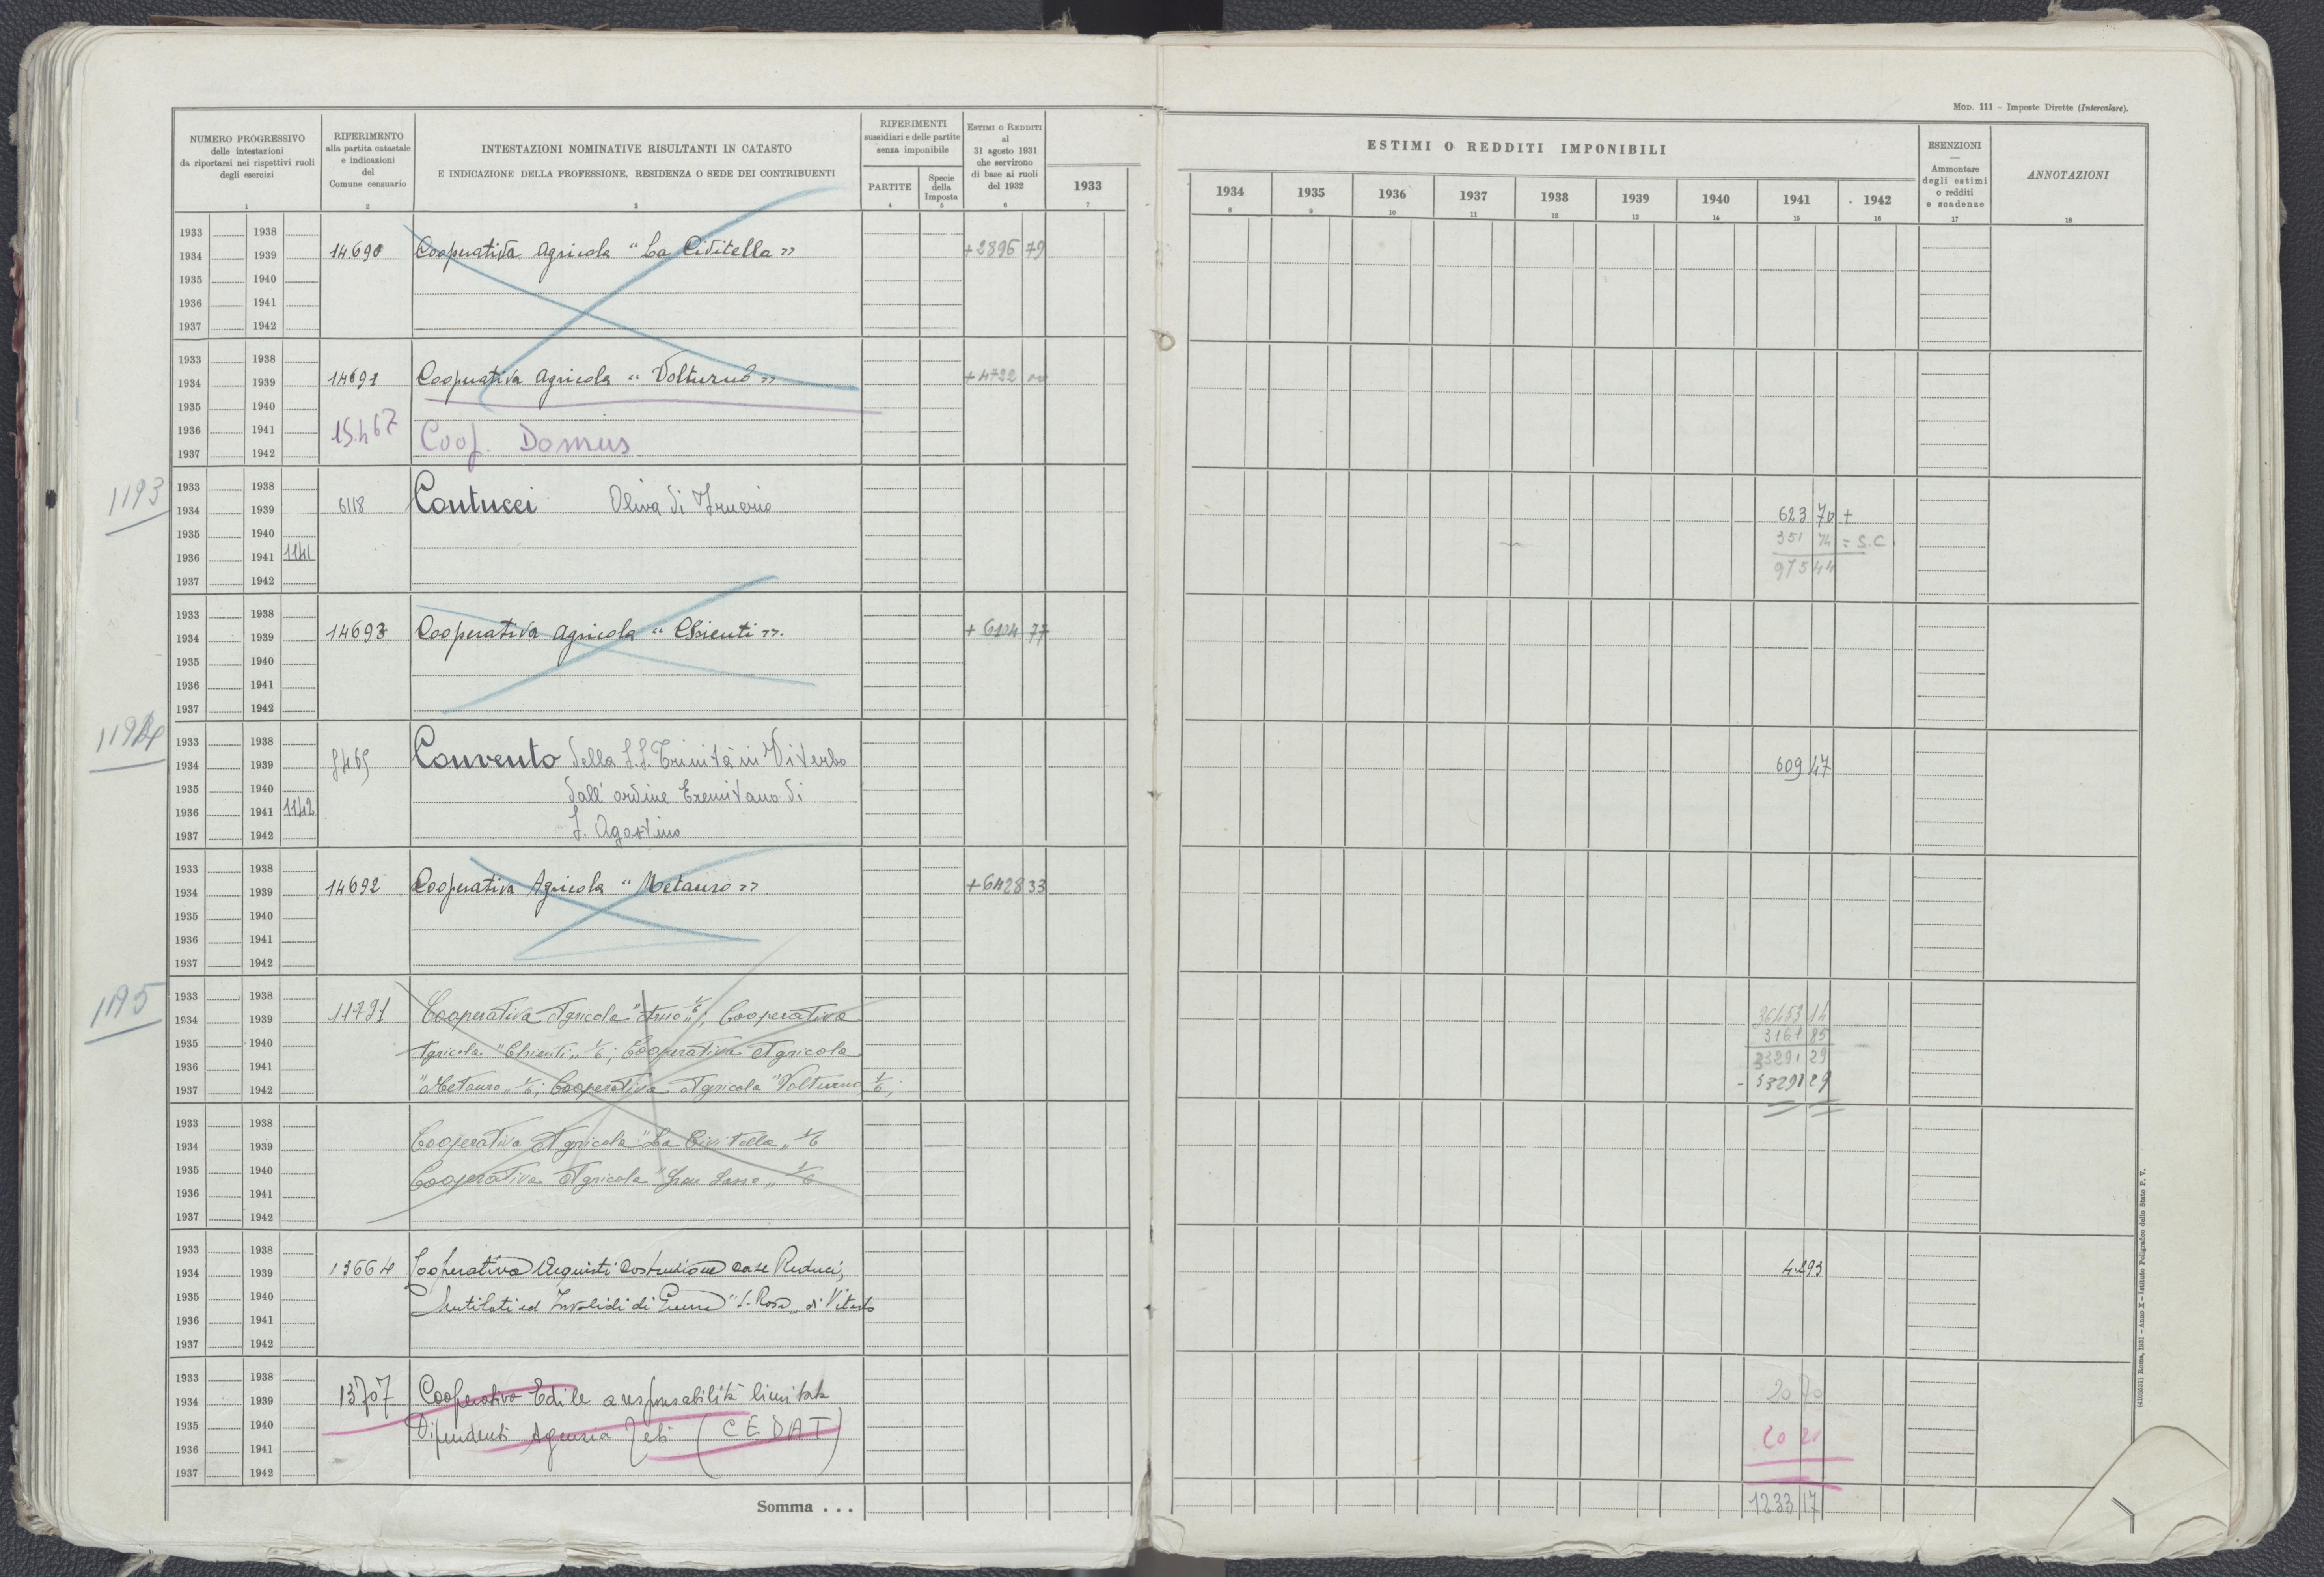 Mod. 111 - Imposte Dirette (Intercalare).
NUMERO PROGRESSIVO
delle intestazioni
da riportarsi nei rispettivi ruoli
degli esercizi
1
RIFERIMENTO
alla partita catastale
e indicazioni
del
Comune censuario
2
INTESTAZIONI NOMINATIVE RISULTANTI IN CATASTO
E INDICAZIONE DELLA PROFESSIONE, RESIDENZA O SEDE DEI CONTRIBUENTI
3
RIFERIMENTI
sussidiari e delle partite
senza imponibile
PARTITE
4
Specie
della
Imposta
5
Estimi o Redditi
al
31 agosto 1931
che servirono
di base ai ruoli
del 1932
6
1933
7
ESTIMI O REDDITI IMPONIBILI
1934 1935 1936 1937 1938 1939 1940 1941 1942
8 9 10 11 12 13 14 15 16
ESENZIONI
Ammontare
degli estimi
o redditi
e scadenze
17
ANNOTAZIONI
18
1933 1938
1934 1939 14.690 Cooperativa Agricola "La Civitella" +2895 79
1935 1940
1936 1941
1937 1942
1933 1938
1934 1939 14691 Cooperativa Agricola "Volturno" +4722
1935 1940
1936 1941 15467 Coop. Domus
1937 1942
1193
1933 1938
1934 1939 6118 Contucci Oliva di 623 70 +
1935 1940 351 74 = S.C.
1936 1941 1141 975 44
1937 1942
1933 1938
1934 1939 14693 Cooperativa Agricola "Chienti". + 6104 77
1935 1940
1936 1941
1937 1942
1194
1933 1938
1934 1939 Convento della S.S. Trinità in Viterbo 609 47
1935 1940 dall' ordine Eremitano di
1936 1941 1142 S. Agostino
1937 1942
1933 1938
1934 1939 14692 Cooperativa Agricola "Metauro" +6428 33
1935 1940
1936 1941
1937 1942
1195
1933 1938
1934 1939 11791 Cooperativa Agricola "Arno" 1/6; Cooperativa 36453 14
1935 1940 Agricola "Chienti" 1/6; Cooperativa Agricola 3161 85
1936 1941 33291 29
1937 1942 "Metauro" 1/6; Cooperativa Agricola "Volturno 1/6; - 33291 29
1933 1938
1934 1939 Cooperativa Agricola "La Civitella" 1/6
1935 1940 Cooperativa Agricola "Gran Sasso" 1/6
1936 1941
1937 1942
1933 1938
1934 1939 13664 Cooperativa Acquisti Costruzione case Reduci, 4293
1935 1940 Mutilati ed Invalidi di Guerra "S. Rosa" di Viterbo
1936 1941
1937 1942
1933 1938
1934 1939 13707 Cooperativa Edile a responsabilità limitata 20 70
1935 1940 Dipendenti Agenzia (CEDAT)
1936 1941
1937 1942
Somma . . . 1233 17
(4103551) Roma, 1931 - Anno X - Istituto Poligrafico dello Stato P. V.